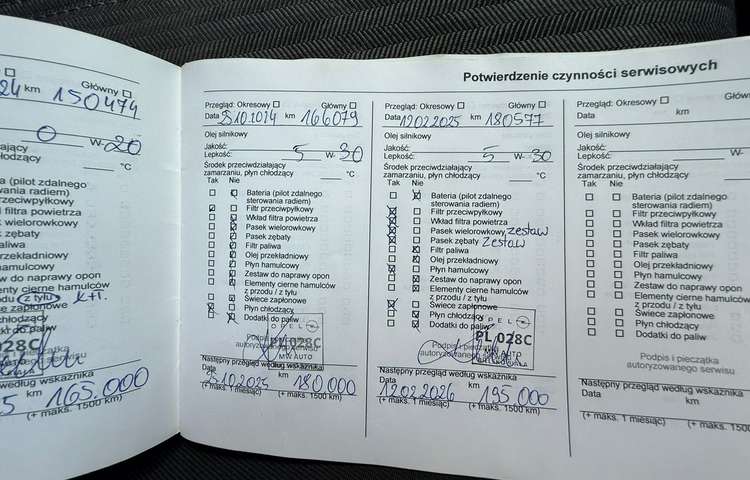 Główny
24 km 150474
0 W-20
chłodzący
°C
a (pilot zdalnego
wania radiem)
rzeciwpyłkowy
filtra powietrza
wielorowkowy
zębaty
paliwa
przekładniowy
hamulcowy
w do naprawy opon
enty cierne hamulców
du / z tyłu k+t.
e zapłonowe
028C
wego serwisu
według wskaźnika
5 km 165.000
(+ maks. 1500 km)
Potwierdzenie czynności serwisowych
Przegląd: Okresowy Główny
Data km 166079
Olej silnikowy
Jakość:
Lepkość: 5 W- 30
Środek przeciwdziałający
zamarzaniu, płyn chłodzący °C
Tak Nie
Bateria (pilot zdalnego
sterowania radiem)
Filtr przeciwpyłkowy
Wkład filtra powietrza
Pasek wielorowkowy
Pasek zębaty
Filtr paliwa
Olej przekładniowy
Płyn hamulcowy
Zestaw do naprawy opon
Elementy cierne hamulców
z przodu / z tyłu
Świece zapłonowe
Płyn chłodzący
Dodatki do paliw
OPEL
PL 028C
MW AUTO
Podpis i pieczątka
autoryzowanego
Następny przegląd według wskaźnika
Data km
5.10.2025 180.000
(+ maks. 1 miesiąc) (+ maks. 1500 km)
Przegląd: Okresowy Główny
Data 12.02.2025 km 180577
Olej silnikowy
Jakość:
Lepkość: 5 W- 30
Środek przeciwdziałający
zamarzaniu, płyn chłodzący °C
Tak Nie
Bateria (pilot zdalnego
sterowania radiem)
Filtr przeciwpyłkowy
Wkład filtra powietrza
Pasek wielorowkowy zestaw
Pasek zębaty zestaw
Filtr paliwa
Olej przekładniowy
Płyn hamulcowy
Zestaw do naprawy opon
Elementy cierne hamulców
z przodu / z tyłu
Świece zapłonowe
Płyn chłodzący
Dodatki do paliw
OPEL
PL 028C
MW AUTO
Podpis i pieczątka
autoryzowanego
Następny przegląd według wskaźnika
Data km
12.02.2026 195.000
(+ maks. 1 miesiąc) (+ maks. 1500 km)
Przegląd: Okresowy
Data km
Olej silnikowy
Jakość:
Lepkość: W-
Środek przeciwdziałający
zamarzaniu, płyn chłodzący
Tak Nie
Bateria (pilot zdalnego
sterowania radiem)
Filtr przeciwpyłkowy
Wkład filtra powietrza
Pasek wielorowkowy
Pasek zębaty
Filtr paliwa
Olej przekładniowy
Płyn hamulcowy
Zestaw do naprawy opon
Elementy cierne hamulców
z przodu / z tyłu
Świece zapłonowe
Płyn chłodzący
Dodatki do paliw
Podpis i pieczątka
autoryzowanego serwisu
Następny przegląd według wskaźnika
Data km
(+ maks. 1 miesiąc) (+ maks. 1500